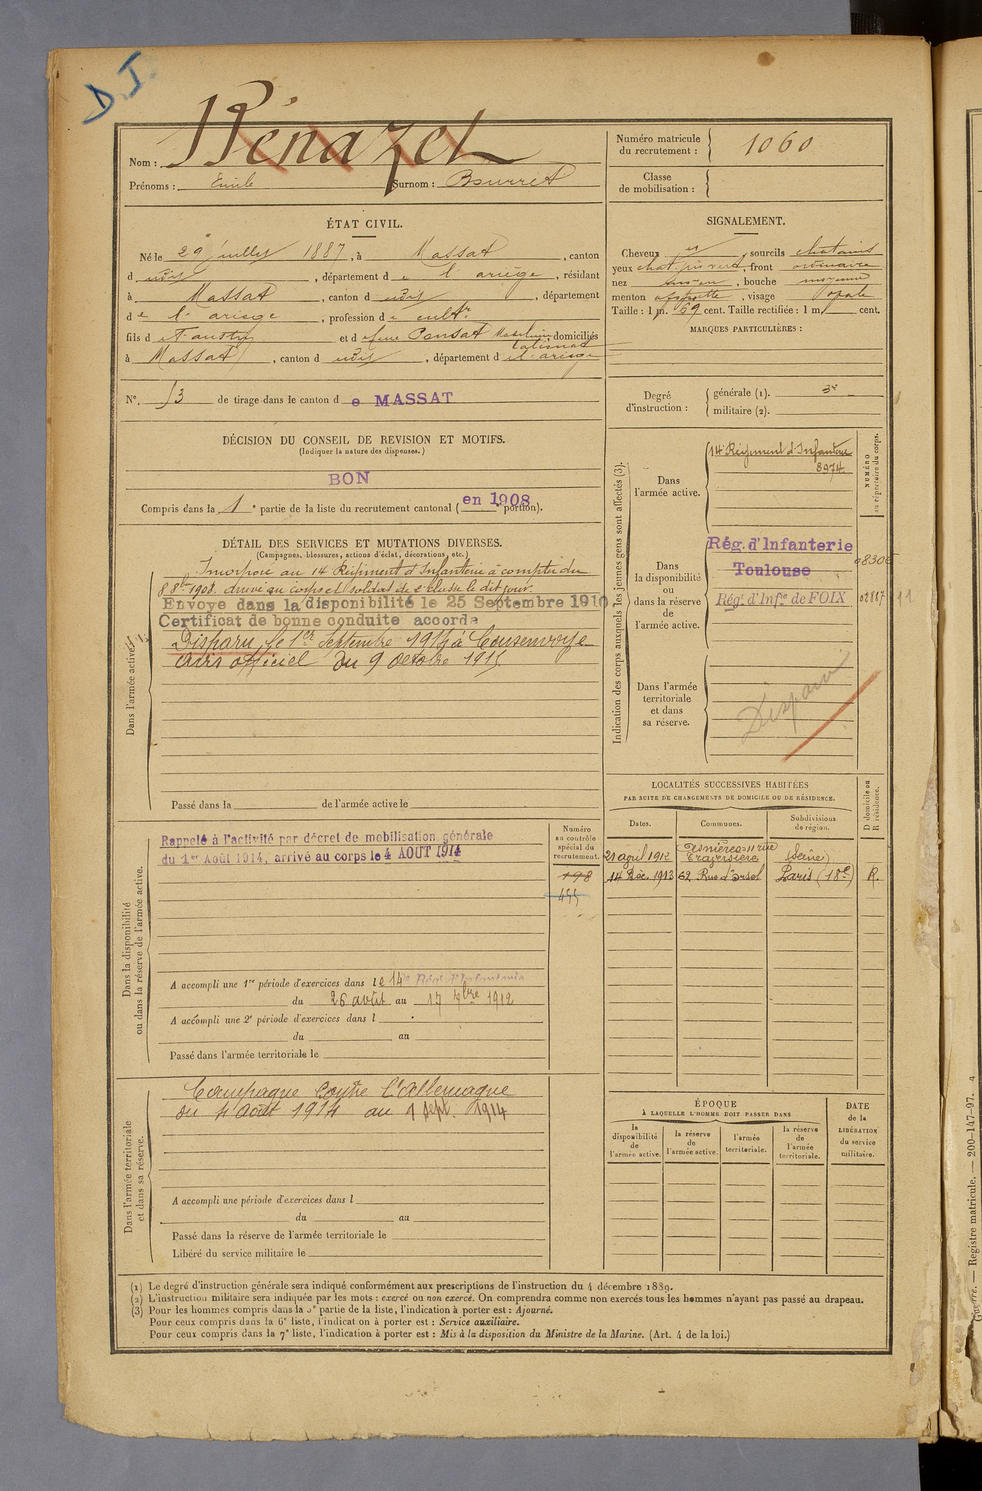 D.J.
Nom : Bénazet
Prénoms : Emile Surnom : Bourret
Numéro matricule du recrutement : 1060
Classe de mobilisation :
ÉTAT CIVIL.
Né le 29 juillet 1887, à Massat, canton
d udit, département de l'ariège, résidant
à Massat, canton d udit, département
de l'ariège, profession de cultr
fils d et d domiciliés
à Massat, canton d udit, département d el'ariège
SIGNALEMENT.
Cheveux et, sourcils chatains
yeux chat., front ordinaire
nez moyen, bouche moyenne
menton, visage ovale
Taille : 1 m. 69 cent. Taille rectifiée : 1 m. cent.
MARQUES PARTICULIÈRES :
N°. 53 de tirage dans le canton de MASSAT
Degré d'instruction : générale (1). 3
militaire (2).
DÉCISION DU CONSEIL DE REVISION ET MOTIFS.
(Indiquer la nature des dispenses.)
BON
Compris dans la 1e partie de la liste du recrutement cantonal ( en 1908 e portion).
DÉTAIL DES SERVICES ET MUTATIONS DIVERSES.
(Campagnes, blessures, actions d'éclat, décorations, etc.)
Dans l'armée active.
Incorporé au 14 Régiment d'Infanterie à compter du
8 8bre 1908. arrivé au corps et soldat de 2e classe le dit jour.
Envoyé dans la disponibilité le 25 Septembre 1910.
Certificat de bonne conduite accordé
Disparu le 1er Septembre 1914 à Consenvoye
Avis officiel du 9 octobre 1915
Passé dans la de l'armée active le
Indication des corps auxquels les jeunes gens sont affectés (3).
NUMÉRO au répertoire du corps.
Dans l'armée active.
14e Régiment d'Infanterie
8974
Dans la disponibilité ou dans la réserve de l'armée active.
Rég. d'Infanterie
Toulouse
Rég. d'Infie de FOIX
Dans l'armée territoriale et dans sa réserve.
Disparu
LOCALITÉS SUCCESSIVES HABITÉES
PAR SUITE DE CHANGEMENTS DE DOMICILE OU DE RÉSIDENCE.
Dates. Communes. Subdivisions de région. D domicile ou R résidence.
21 avril 1912 Asnières 11 rue Traversière (Seine)
14 Déc. 1913 62 Rue d'Orsel Paris (18e) R.
Dans la disponibilité ou dans la réserve de l'armée active.
Numéro au contrôle spécial du recrutement.
198
455
Rappelé à l'activité par décret de mobilisation générale
du 1er Août 1914, arrivé au corps le 4 AOUT 1914
A accompli une 1re période d'exercices dans le 14e Régt d'Infanterie
du 26 août au 17 7bre 1912
A accompli une 2e période d'exercices dans l
du au
Passé dans l'armée territoriale le
Dans l'armée territoriale et dans sa réserve.
Campagne contre l'Allemagne
du 4 août 1914 au 1 sept. 1914
A accompli une période d'exercices dans l
du au
Passé dans la réserve de l'armée territoriale le
Libéré du service militaire le
ÉPOQUE
À LAQUELLE L'HOMME DOIT PASSER DANS
la disponibilité de l'armée active.
la réserve de l'armée active.
l'armée territoriale.
la réserve de l'armée territoriale.
DATE de la LIBÉRATION du service militaire.
(1) Le degré d'instruction générale sera indiqué conformément aux prescriptions de l'instruction du 4 décembre 1889.
(2) L'instruction militaire sera indiquée par les mots : exercé ou non exercé. On comprendra comme non exercés tous les hommes n'ayant pas passé au drapeau.
(3) Pour les hommes compris dans la 5e partie de la liste, l'indication à porter est : Ajourné.
Pour ceux compris dans la 6e liste, l'indication à porter est : Service auxiliaire.
Pour ceux compris dans la 7e liste, l'indication à porter est : Mis à la disposition du Ministre de la Marine. (Art. 4 de la loi.)
Guerre. — Registre matricule. — 200-147-97. 4